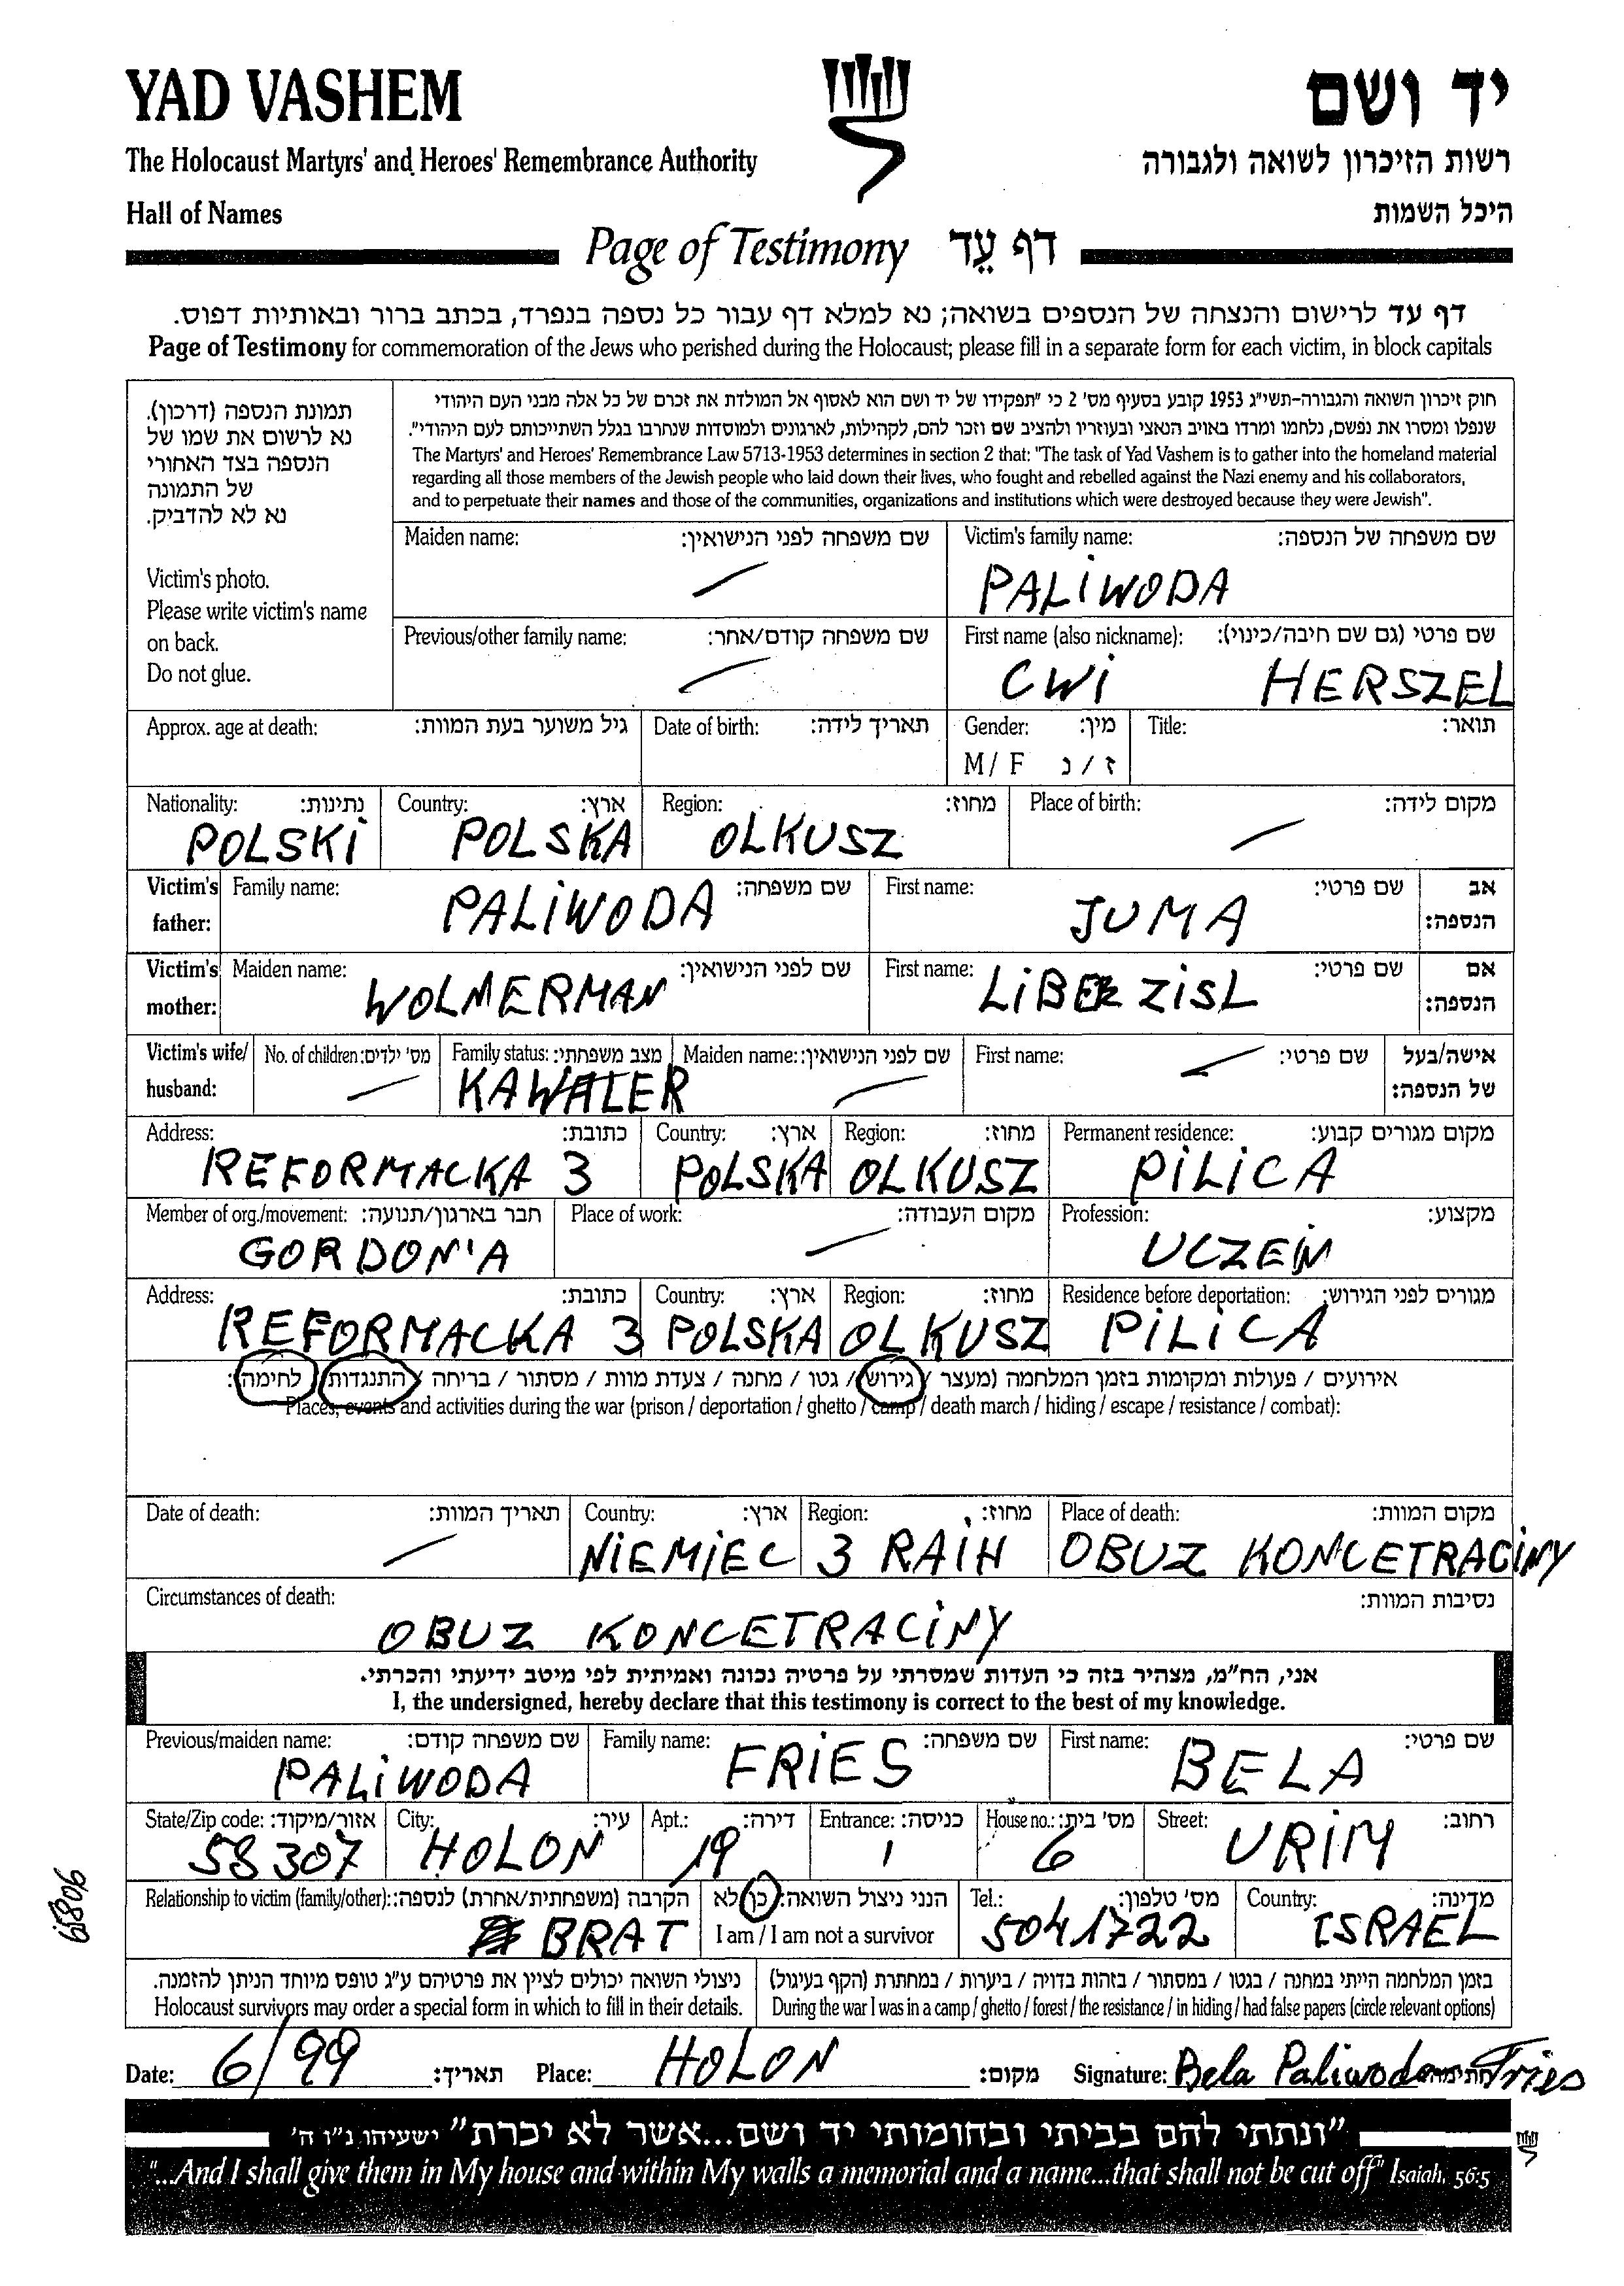 YAD VASHEM
יד ושם
The Holocaust Martyrs' and Heroes' Remembrance Authority
רשות הזיכרון לשואה ולגבורה
Hall of Names
היכל השמות
Page of Testimony דף עֵד
דף עד לרישום והנצחה של הנספים בשואה; נא למלא דף עבור כל נספה בנפרד, בכתב ברור ובאותיות דפוס.
Page of Testimony for commemoration of the Jews who perished during the Holocaust; please fill in a separate form for each victim, in block capitals
תמונת הנספה (דרכון).
נא לרשום את שמו של
הנספה בצד האחורי
של התמונה
נא לא להדביק.
Victim's photo.
Please write victim's name
on back.
Do not glue.
חוק זיכרון השואה והגבורה-תשי"ג 1953 קובע בסעיף מס' 2 כי "תפקידו של יד ושם הוא לאסוף אל המולדת את זכרם של כל אלה מבני העם היהודי
שנפלו ומסרו את נפשם, נלחמו ומרדו באויב הנאצי ובעוזריו ולהציב שם וזכר להם, לקהילות, לארגונים ולמוסדות שנחרבו בגלל השתייכותם לעם היהודי".
The Martyrs' and Heroes' Remembrance Law 5713-1953 determines in section 2 that: "The task of Yad Vashem is to gather into the homeland material
regarding all those members of the Jewish people who laid down their lives, who fought and rebelled against the Nazi enemy and his collaborators,
and to perpetuate their names and those of the communities, organizations and institutions which were destroyed because they were Jewish".
Maiden name: שם משפחה לפני הנישואין: Victim's family name: שם משפחה של הנספה:
PALIWODA
Previous/other family name: שם משפחה קודם/אחר: First name (also nickname): שם פרטי (גם שם חיבה/כינוי):
CWI HERSZEL
Approx. age at death: גיל משוער בעת המוות: Date of birth: תאריך לידה: Gender: מין: Title: תואר:
M / F ז / נ
Nationality: נתינות: Country: ארץ: Region: מחוז: Place of birth: מקום לידה:
POLSKI POLSKA OLKUSZ
Victim's father: Family name: שם משפחה: First name: שם פרטי: אב הנספה:
PALIWODA JUMA
Victim's mother: Maiden name: שם לפני הנישואין: First name: שם פרטי: אם הנספה:
WOLMERMAN LIBE ZISL
Victim's wife/ husband: No. of children: מס' ילדים: Family status: מצב משפחתי: Maiden name: שם לפני הנישואין: First name: שם פרטי: אישה/בעל של הנספה:
KAWALER
Address: כתובת: Country: ארץ: Region: מחוז: Permanent residence: מקום מגורים קבוע:
REFORMACKA 3 POLSKA OLKUSZ PILICA
Member of org./movement: חבר בארגון/תנועה: Place of work: מקום העבודה: Profession: מקצוע:
GORDON'A UCZEIN
Address: כתובת: Country: ארץ: Region: מחוז: Residence before deportation: מגורים לפני הגירוש:
REFORMACKA 3 POLSKA OLKUSZ PILICA
אירועים / פעולות ומקומות בזמן המלחמה (מעצר / גירוש / גטו / מחנה / צעדת מוות / מסתור / בריחה / התנגדות / לחימה):
Places, events and activities during the war (prison / deportation / ghetto / camp / death march / hiding / escape / resistance / combat):
Date of death: תאריך המוות: Country: ארץ: Region: מחוז: Place of death: מקום המוות:
NIEMIEC 3 RAIH OBUZ KONCETRACINY
Circumstances of death: נסיבות המוות:
OBUZ KONCETRACINY
אני, הח"מ, מצהיר בזה כי העדות שמסרתי על פרטיה נכונה ואמיתית לפי מיטב ידיעתי והכרתי.
I, the undersigned, hereby declare that this testimony is correct to the best of my knowledge.
Previous/maiden name: שם משפחה קודם: Family name: שם משפחה: First name: שם פרטי:
PALIWODA FRIES BELA
State/Zip code: אזור/מיקוד: City: עיר: Apt.: דירה: Entrance: כניסה: House no.: מס' בית: Street: רחוב:
58307 HOLON 19 1 6 URIM
Relationship to victim (family/other): הקרבה (משפחתית/אחרת) לנספה: הנני ניצול השואה: כן לא Tel.: מס' טלפון: Country: מדינה:
BRAT I am / I am not a survivor 5041722 ISRAEL
65806
ניצולי השואה יכולים לציין את פרטיהם ע"ג טופס מיוחד הניתן להזמנה. בזמן המלחמה הייתי במחנה / בגטו / במסתור / בזהות בדויה / ביערות / במחתרת (הקף בעיגול)
Holocaust survivors may order a special form in which to fill in their details. During the war I was in a camp / ghetto / forest / the resistance / in hiding / had false papers (circle relevant options)
Date: 6/99 תאריך: Place: HOLON מקום: Signature: Bela Paliwoda Fries חתימה:
"ונתתי להם בביתי ובחומותי יד ושם...אשר לא יכרת" ישעיהו נ"ו ה'
"...And I shall give them in My house and within My walls a memorial and a name...that shall not be cut off" Isaiah, 56:5